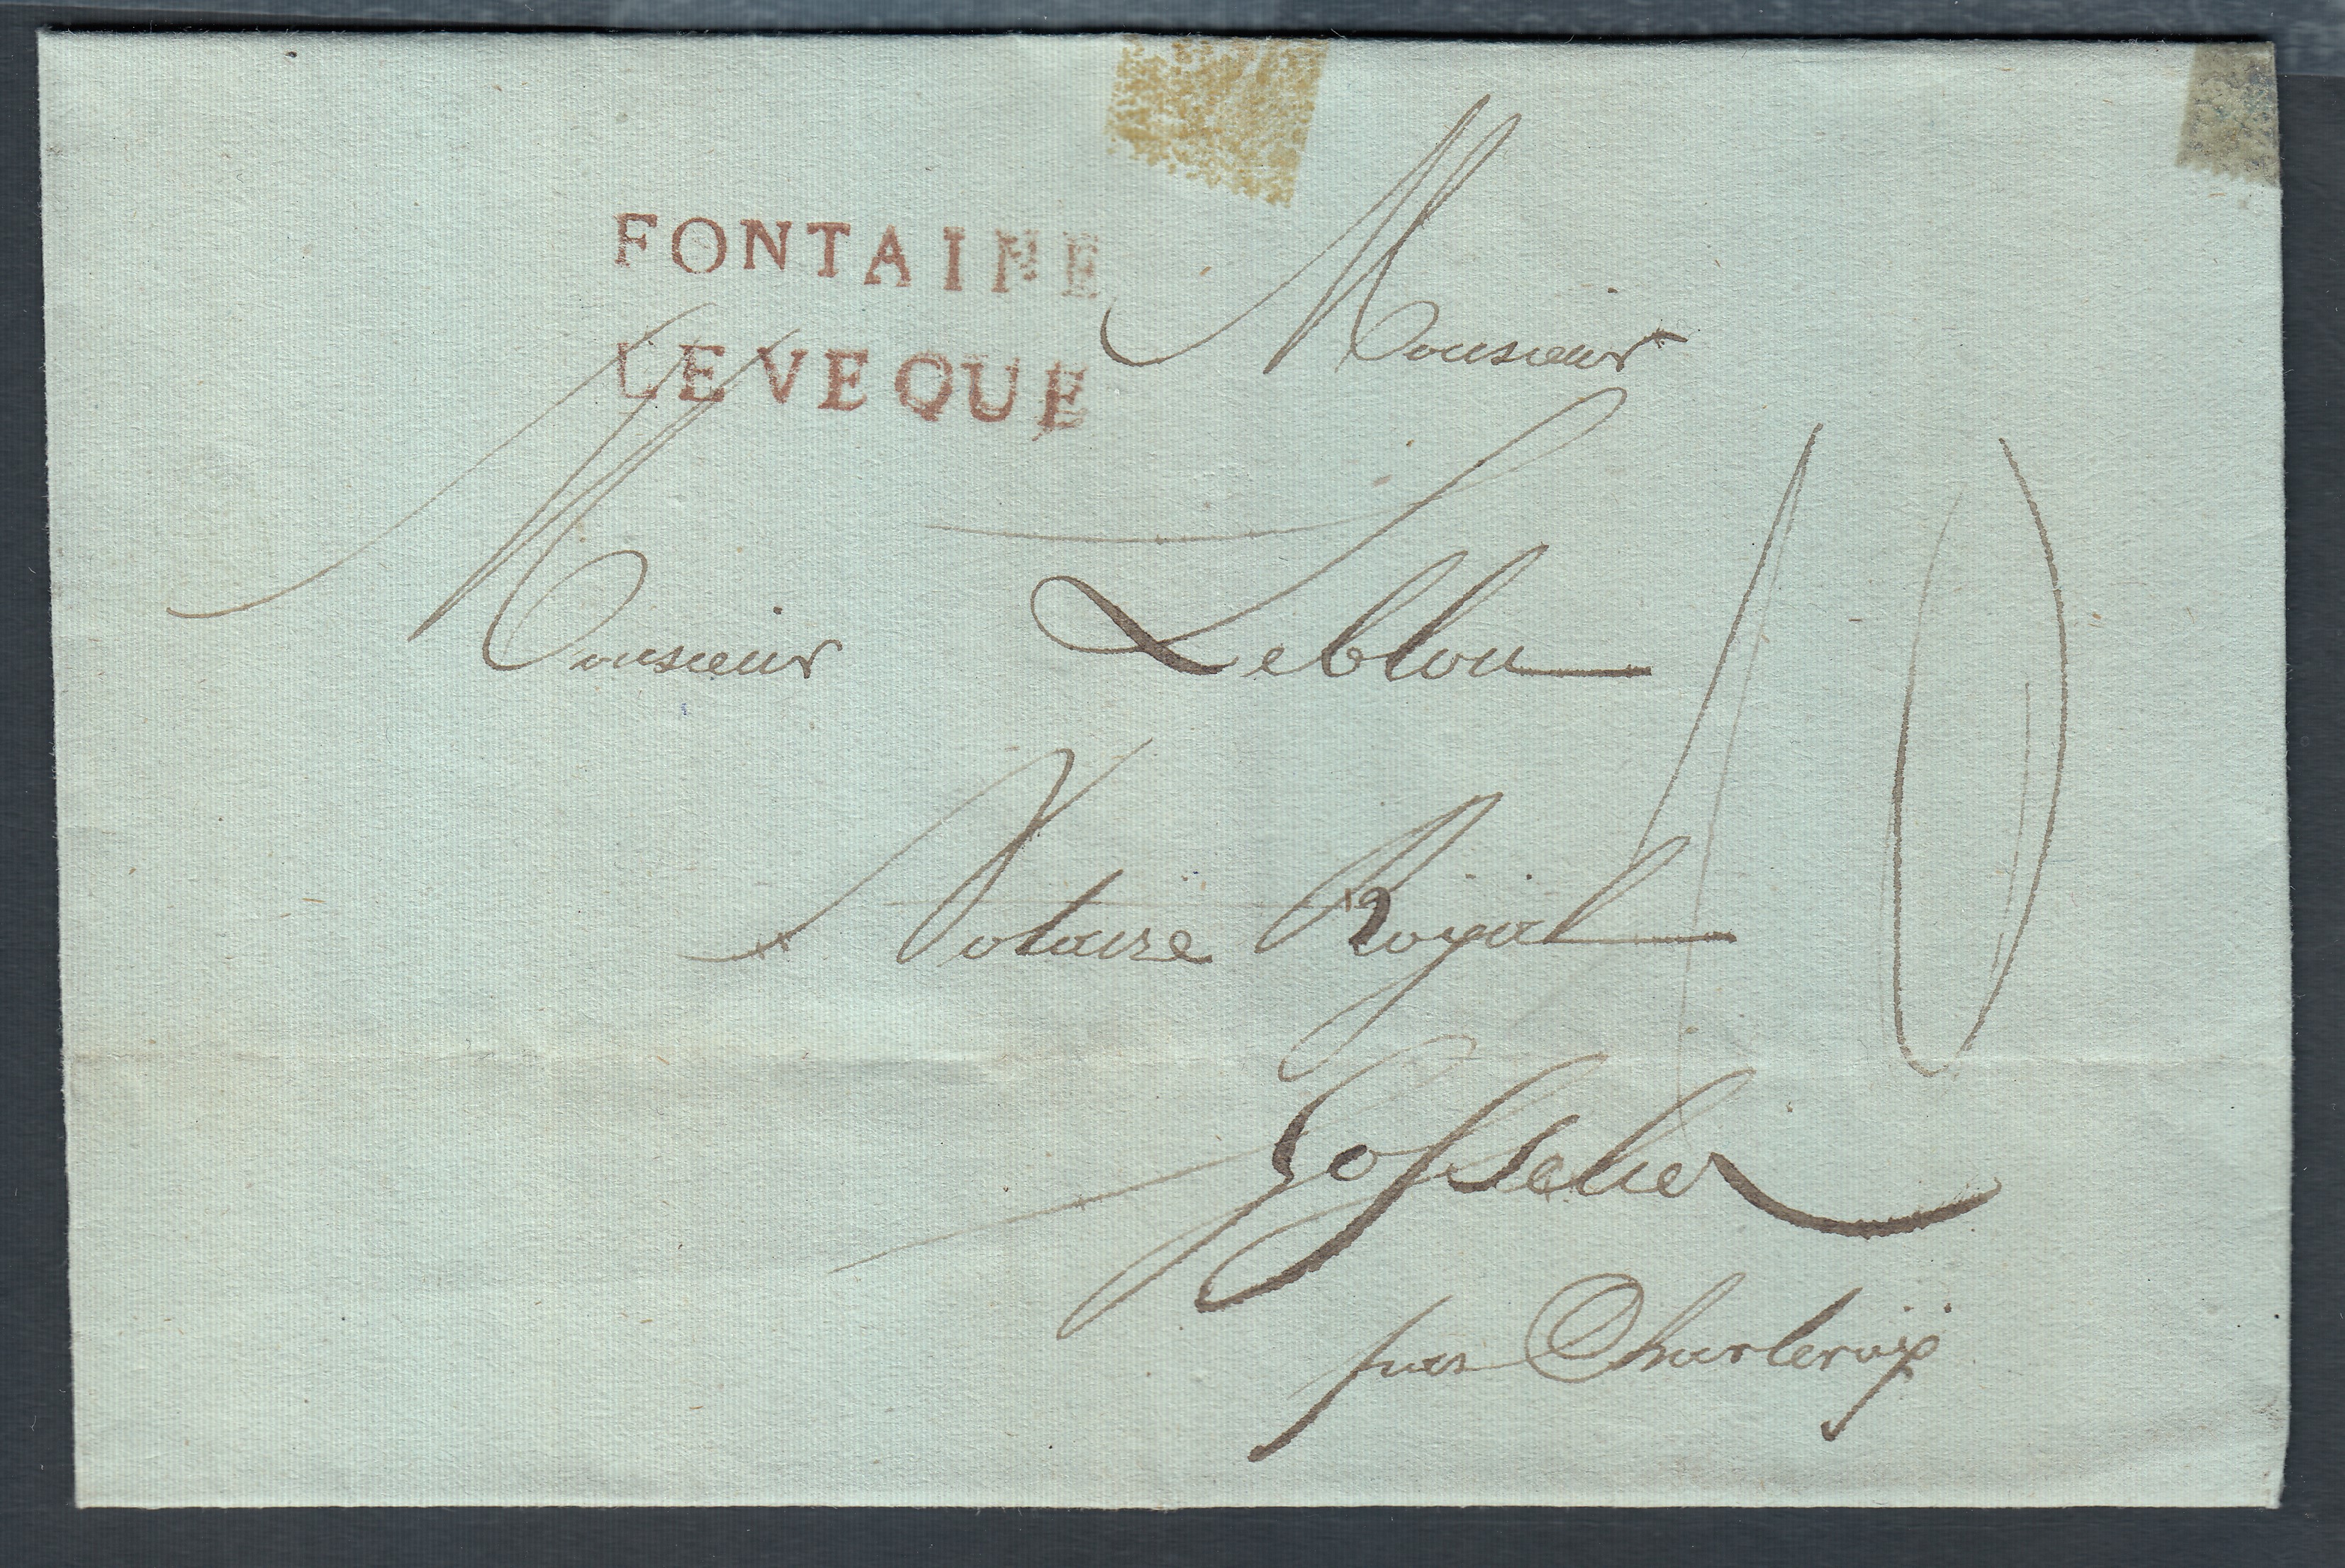 FONTAINE
LEVEQUE
Monsieur
Monsieur Leblon
Notaire Royal
10
Gosselies
pres Charleroÿ